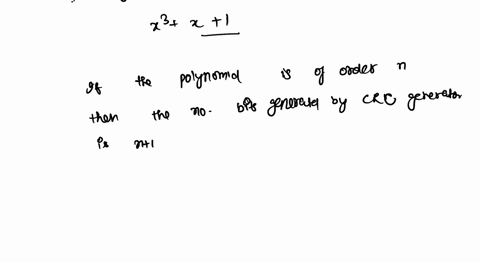 x³+ x +1
If the polynomial is of order n
then the no. bits generated by CRC generator
is n+1